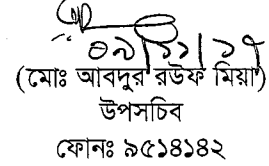 ০৯/১১/১৭
(মোঃ আবদুর রউফ মিয়া)
উপসচিব
ফোনঃ ৯৫১৪১৪২